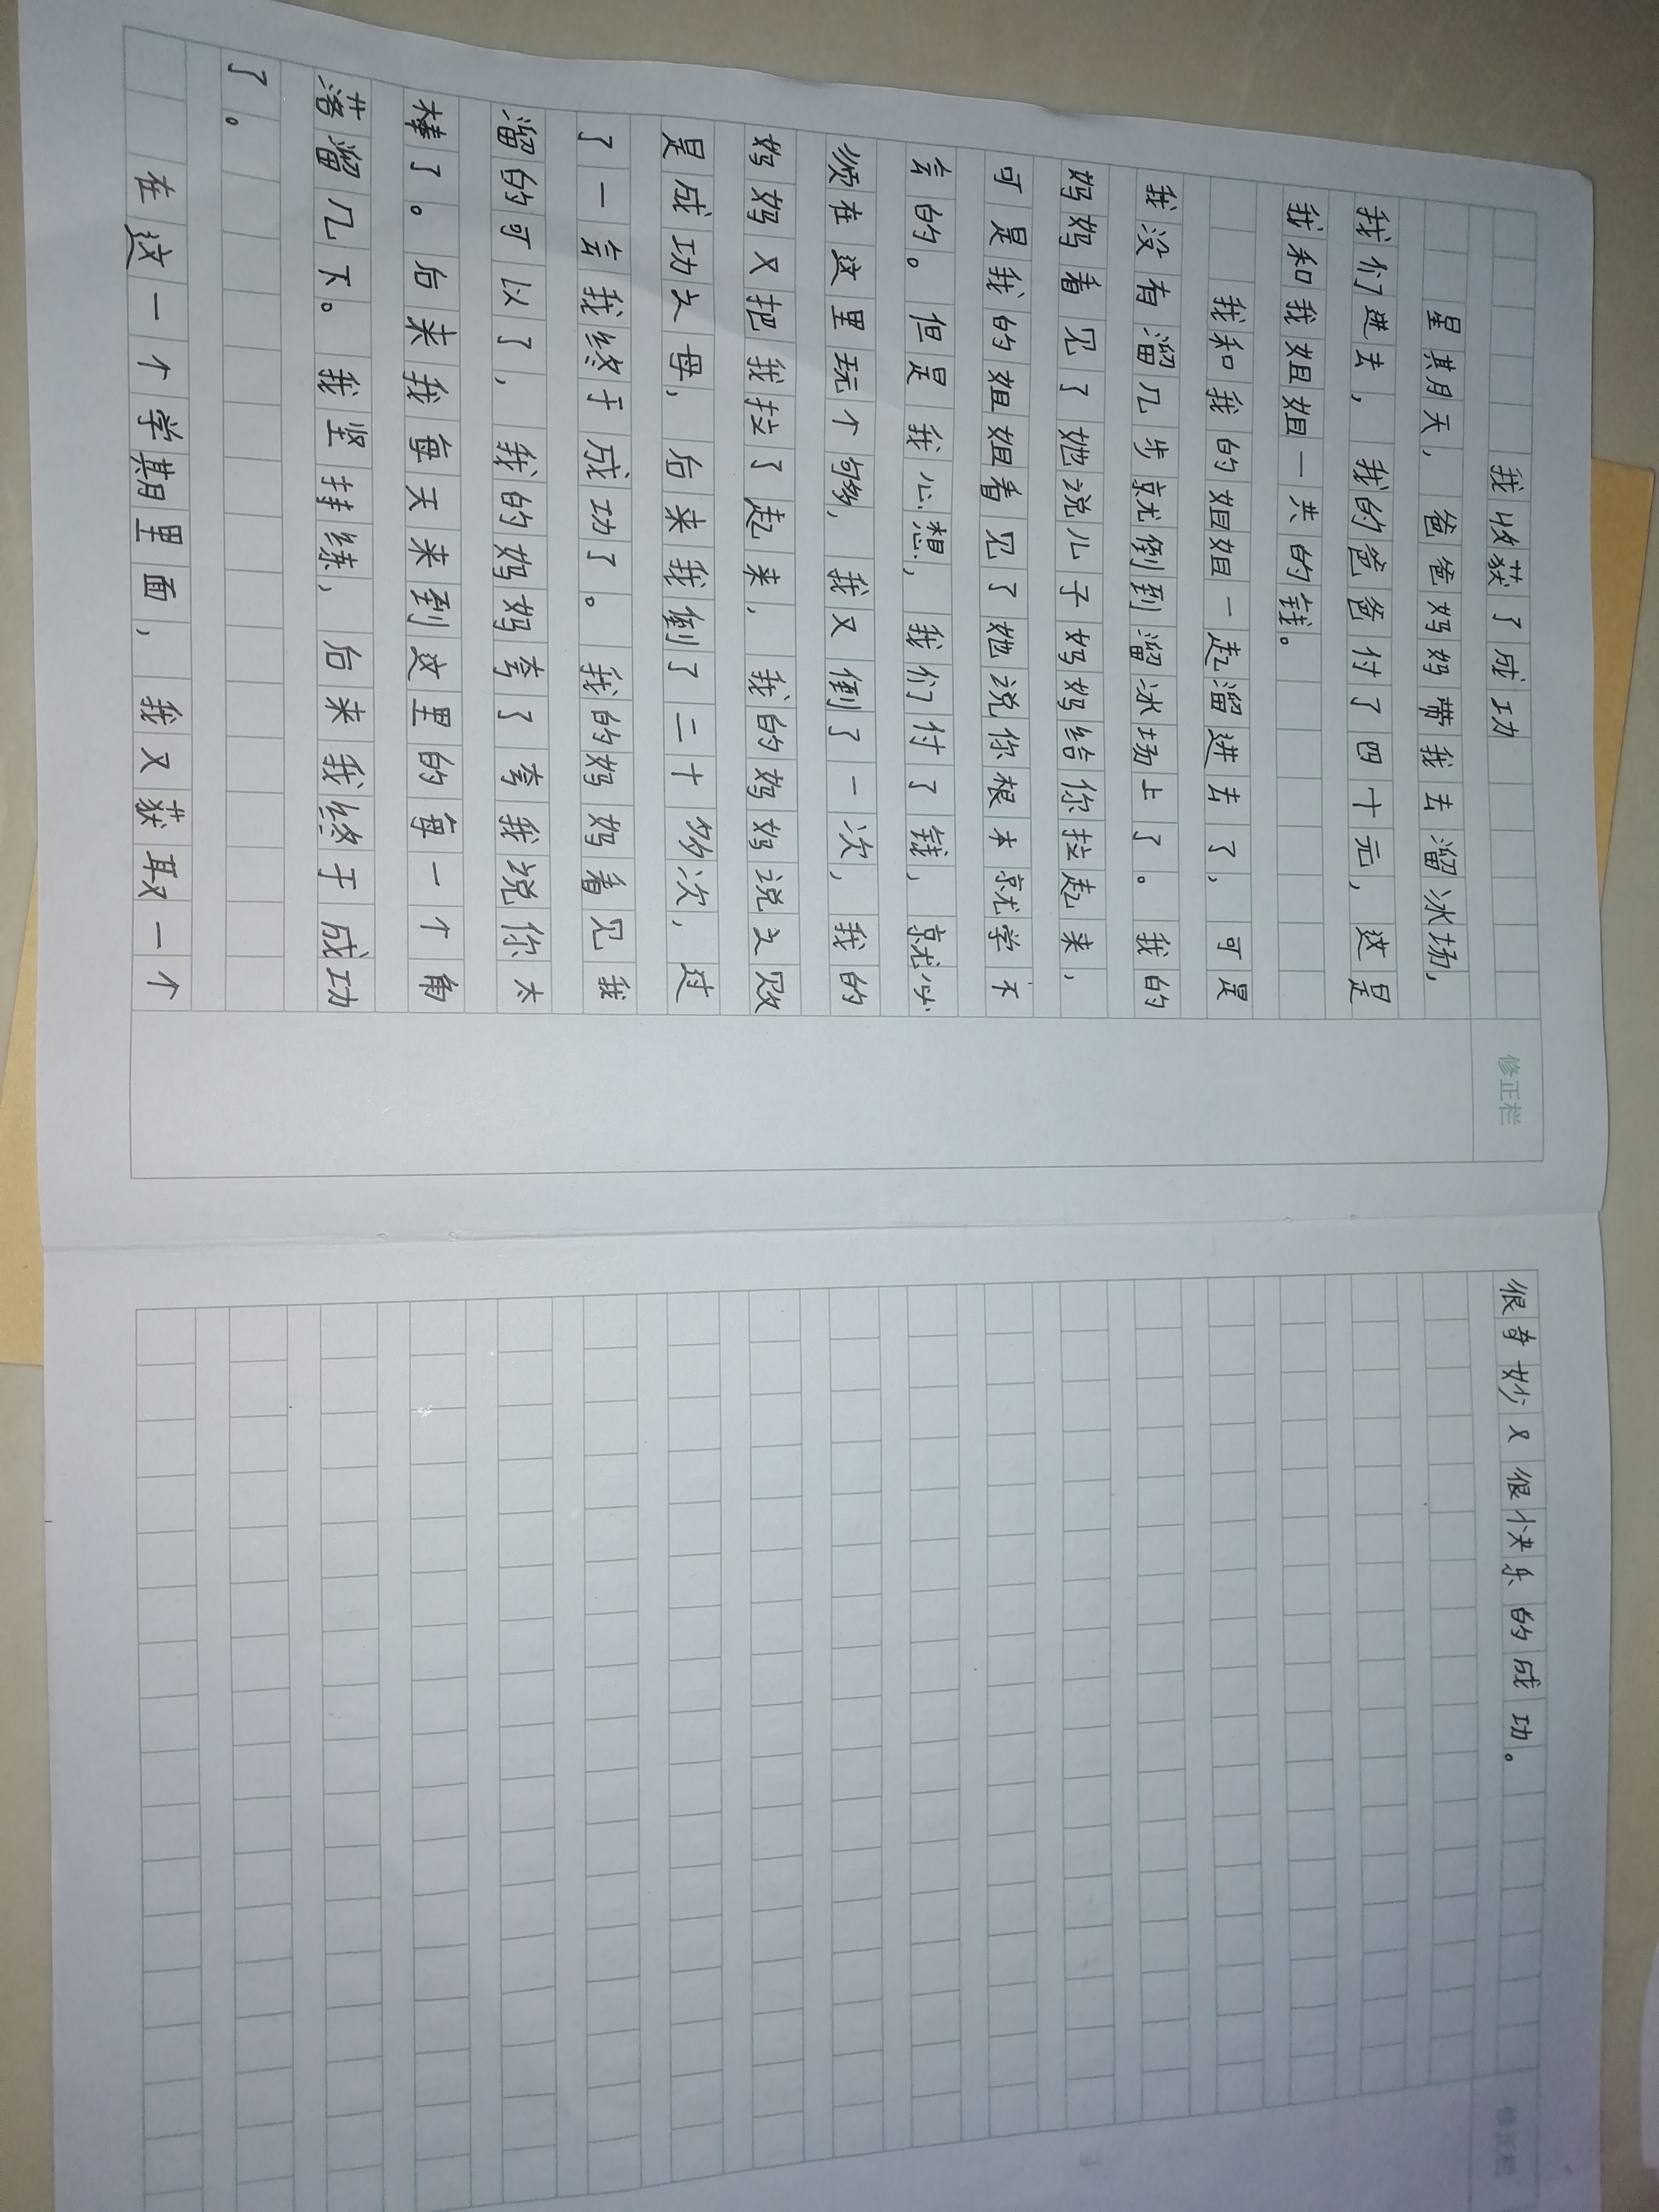 我收获了成功
星其月天，爸爸妈妈带我去溜冰场，
我们进去，我的爸爸付了四十元，这是
我和我姐姐一共的钱。
我和我的姐姐一起溜进去了，可是
我没有溜几步就倒到溜冰场上了。我的
妈妈看见了她说儿子妈妈给你拉起来，
可是我的姐姐看见了她说你根本就学不
会的。但是我心想，我们付了钱，就必
须在这里玩个够，我又倒了一次，我的
妈妈又把我拉了起来，我的妈妈说之败
是成功之母，后来我倒了二十多次，过
了一会我终于成功了。我的妈妈看见我
溜的可以了，我的妈妈夸了夸我说你太
棒了。后来我每天来到这里的每一个角
落溜几下。我坚持练，后来我终于成功
了。
在这一个学期里面，我又获取一个
很奇妙又很快乐的成功。
修正栏
修正栏